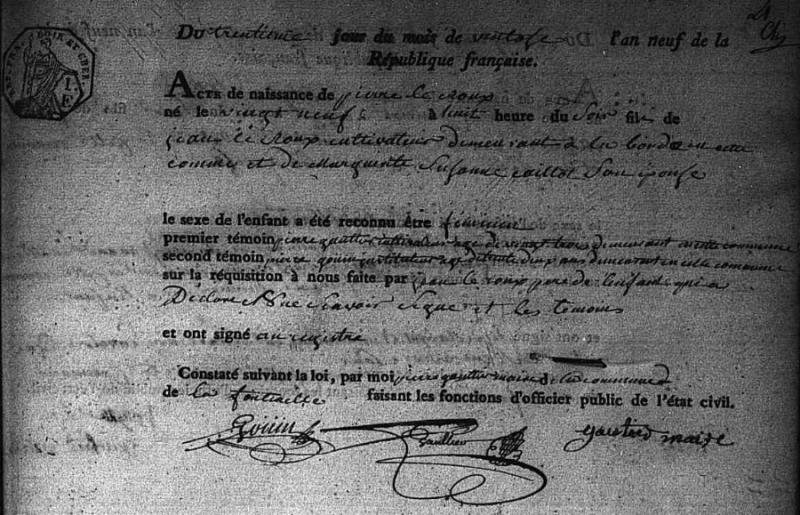 Du trentieme jour du mois de ventose l'an neuf de la
République française.
ACTE de naissance de pierre le roux
né le vingt neuf à huit heure du Soir fils de
jean le roux cultivateur demeurant à la borde en cette
commune et de Marguerite Susanne caillot Son épouse
le sexe de l'enfant a été reconnu être
premier témoin pierre cultivateur agé de vingt trois demeurant en cette commune
second témoin pierre gouin instituteur agé de trente deux ans demeurant en cette commune
sur la réquisition à nous faite par jean le roux pere de l'enfant qui a
Declaré Ne Savoir Signé et les temoins
et ont signé au registre
Constaté suivant la loi, par moi pierre maire de la commune
de la fontenelle faisant les fonctions d'officier public de l'état civil.
Goüin maire